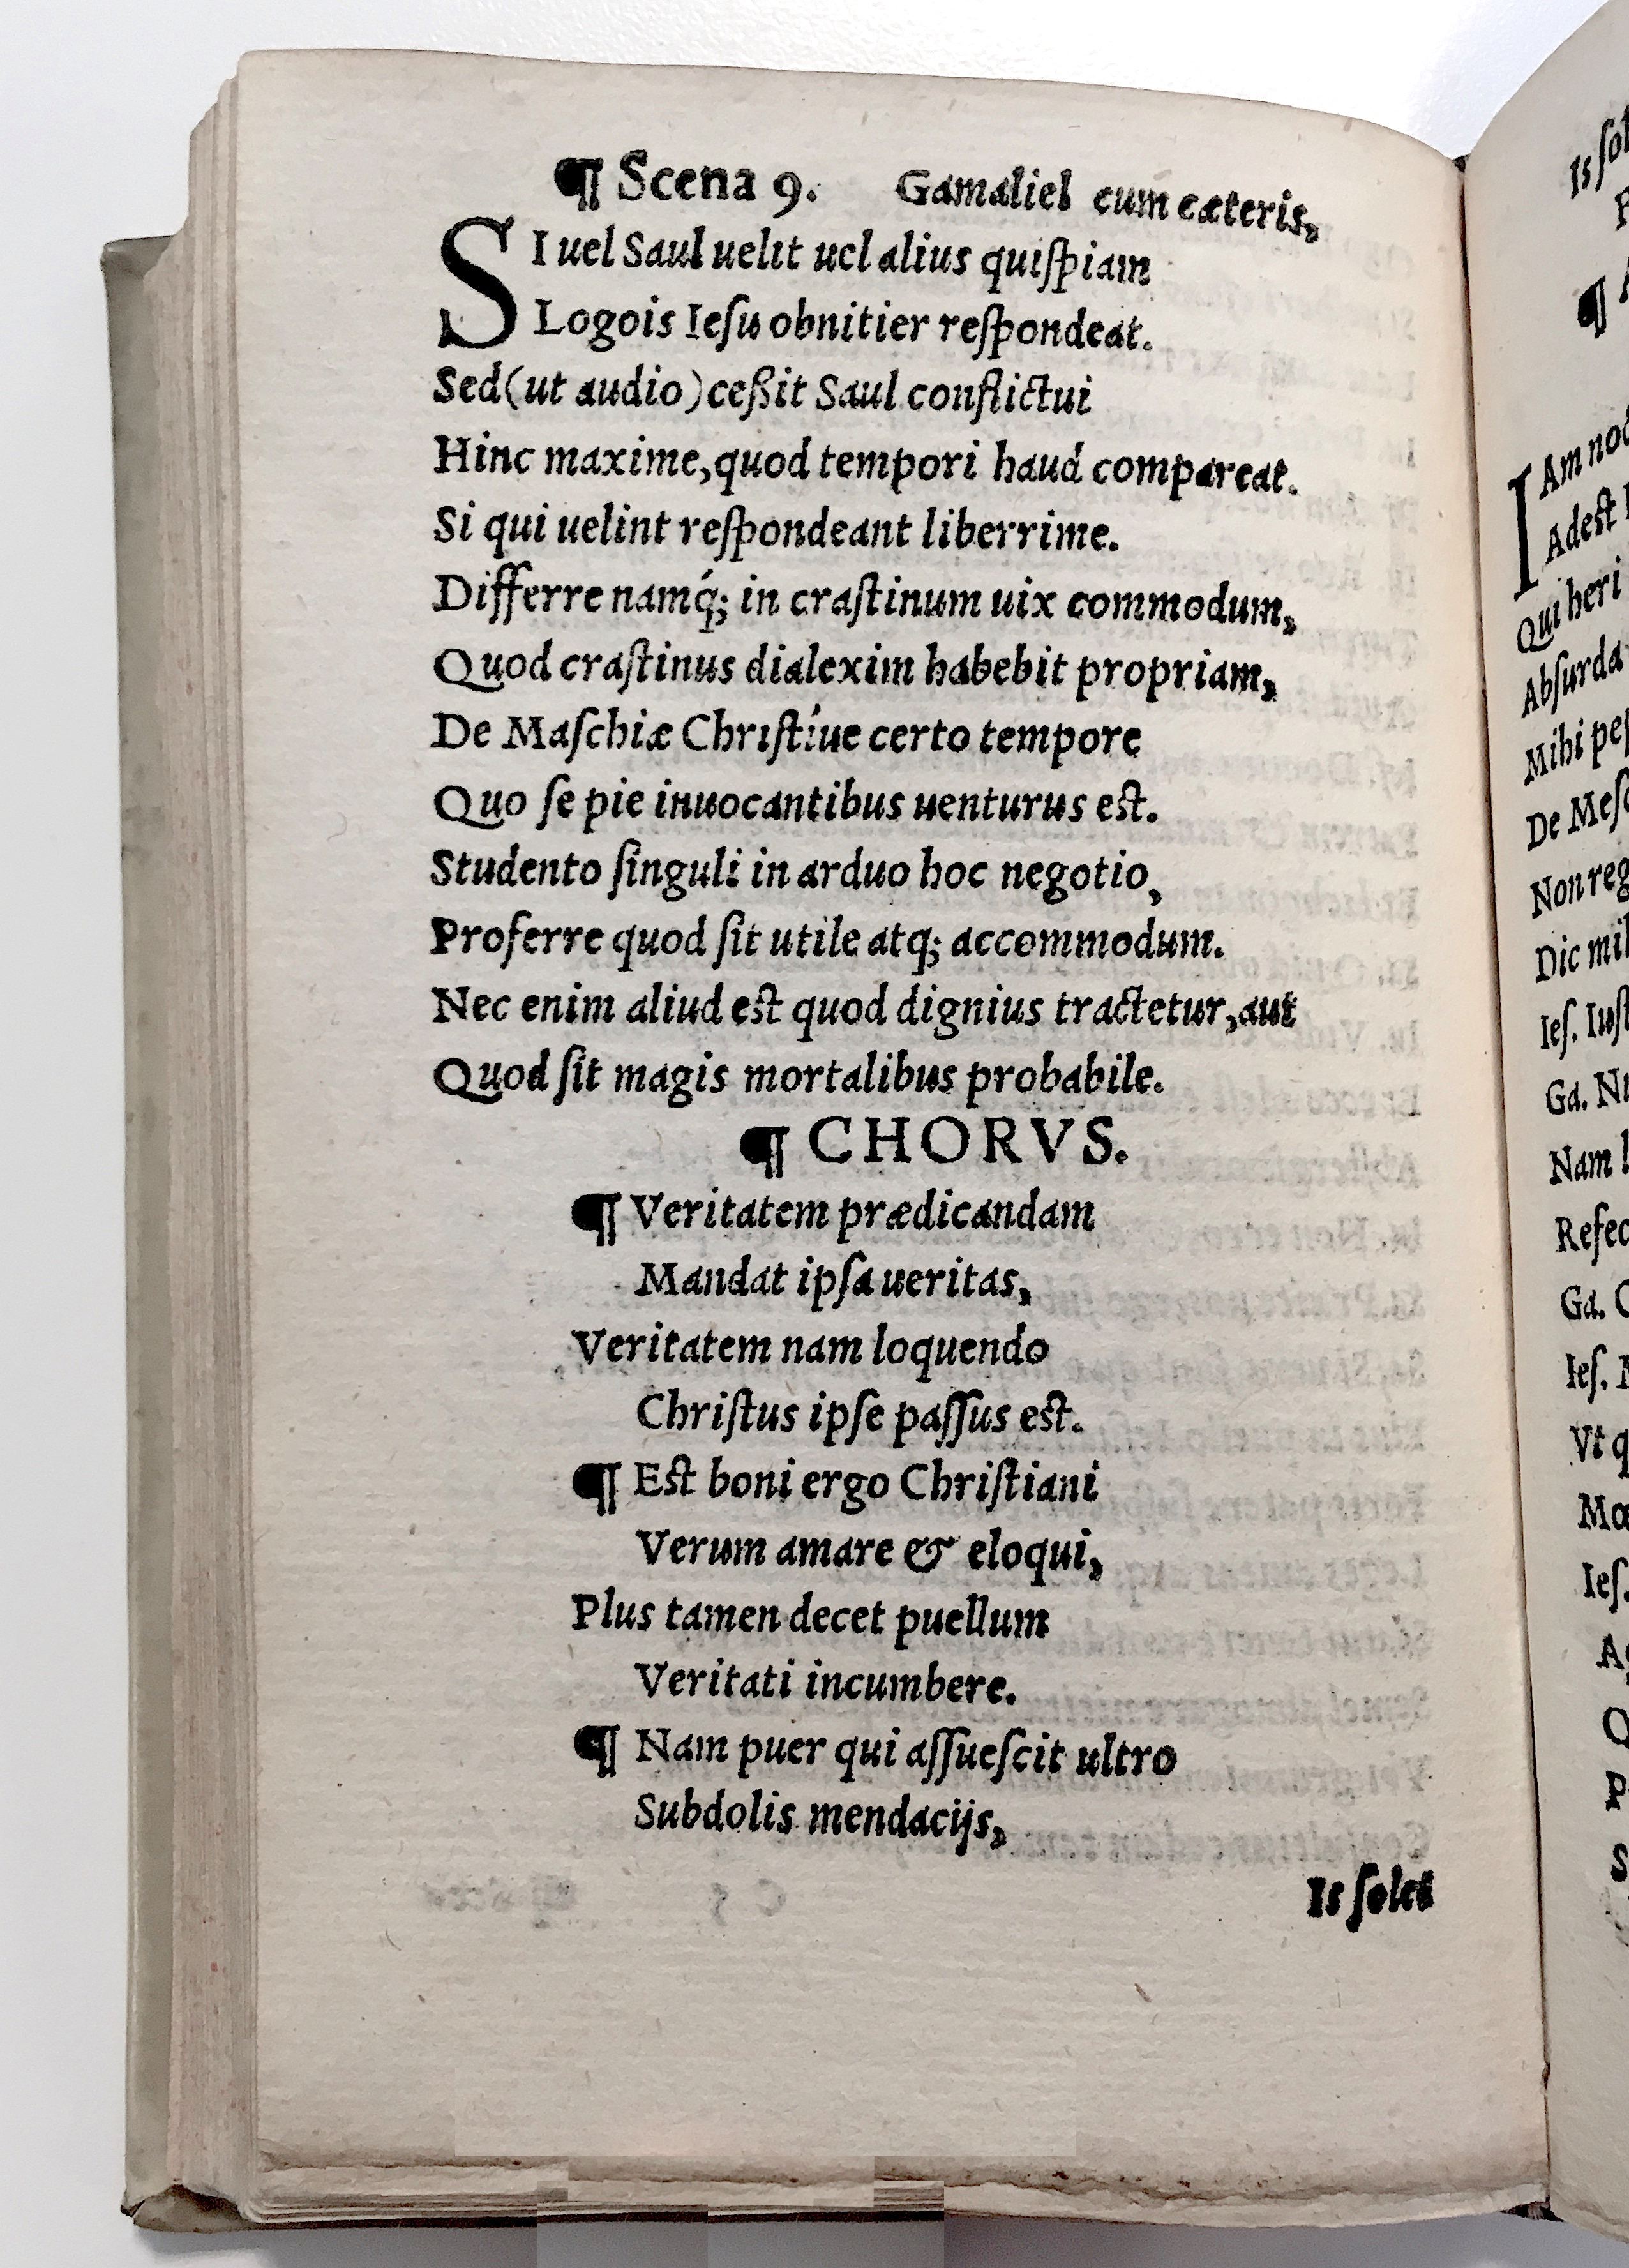 ¶ Scena 9. Gamaliel cum cæteris,
SI uel Saul uelit uel alius quiſpiam
Logois Ieſu obnitier reſpondeat.
Sed (ut audio) ceßit Saul conflictui
Hinc maxime, quod tempori haud compareat.
Si qui uelint reſpondeant liberrime.
Differre namq́; in craſtinum uix commodum,
Quod craſtinus dialexim habebit propriam,
De Maſchiæ Chriſtíue certo tempore
Quo ſe pie inuocantibus uenturus eſt.
Studento ſinguli in arduo hoc negotio,
Proferre quod ſit utile atq; accommodum.
Nec enim aliud eſt quod dignius tractetur, aut
Quod ſit magis mortalibus probabile.
¶ CHORVS.
¶ Veritatem prædicandam
Mandat ipſa ueritas,
Veritatem nam loquendo
Chriſtus ipſe paſſus eſt.
¶ Eſt boni ergo Chriſtiani
Verum amare & eloqui,
Plus tamen decet puellum
Veritati incumbere.
¶ Nam puer qui aſſueſcit ultro
Subdolis mendacijs,
Is ſolet
Is ſol
¶ A
IAm noc
Adeſt
Qui heri
Abſurda
Mihi pep
De Meſc
Non reg
Dic mih
Ieſ. Iuſt
Ga. Nu
Nam
Refec
Ga.
Ieſ.
Vt q
Mœ
Ieſ.